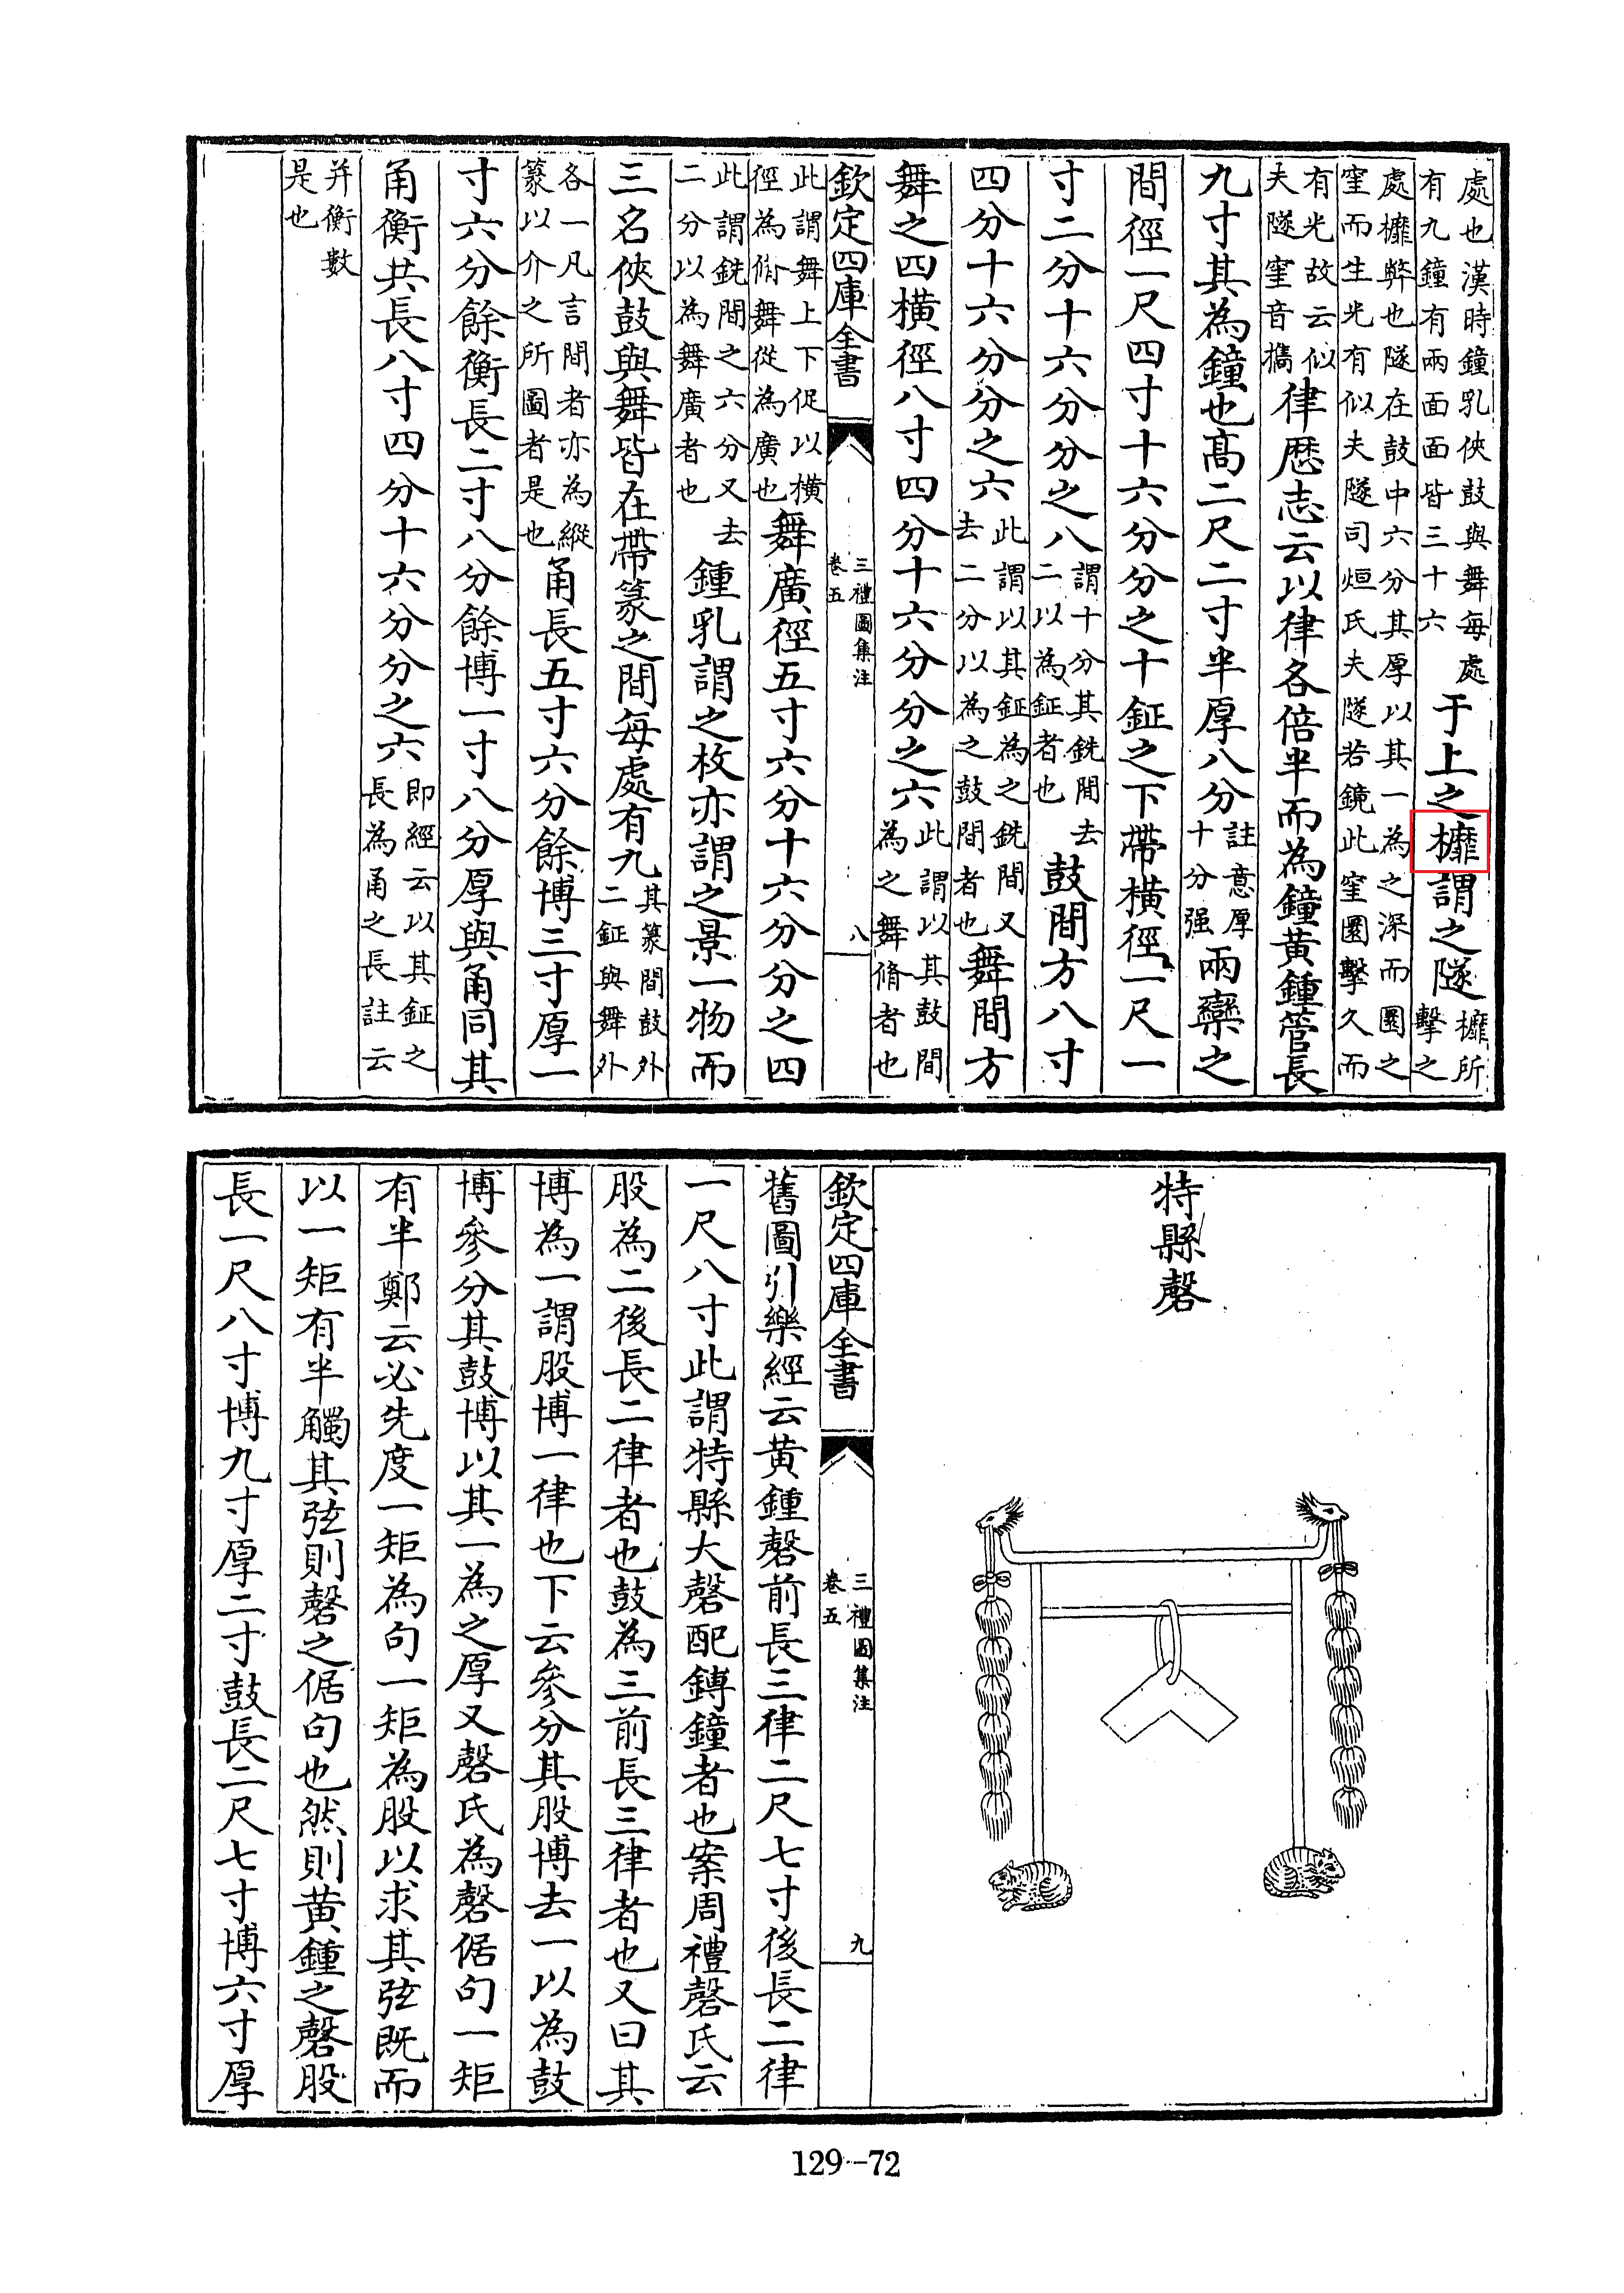 處也漢時鐘乳俠鼓與舞每處有九鐘有兩面面皆三十六于上之攠謂之隧攠所擊之
處攠弊也隧在鼓中六分其厚以其一為之深而圜之窐而生光有似夫隧司烜氏夫隧若鏡此窐圜擊久而
有光故云似夫隧窐音檇律厯志云以律各倍半而為鐘黄鍾管長
九寸其為鐘也髙二尺二寸半厚八分註意厚十分强兩欒之
間徑一尺四寸十六分分之十鉦之下帶横徑一尺一
寸二分十六分分之八謂十分其銑間去二以為鉦者也鼓間方八寸
四分十六分分之六此謂以其鉦為之銑間又去二分以為之鼓間者也舞間方
舞之四横徑八寸四分十六分分之六此謂以其鼓間為之舞脩者也
欽定四庫全書 三禮圖集注 卷五 八
此謂舞上下促以横徑為脩舞從為廣也舞廣徑五寸六分十六分分之四
此謂銑間之六分又去二分以為舞廣者也鍾乳謂之枚亦謂之景一物而
三名俠鼓與舞皆在帶篆之間每處有九其篆間鼓外二鉦與舞外
各一凡言間者亦為縱篆以介之所圖者是也甬長五寸六分餘博三寸厚一
寸六分餘衡長二寸八分餘博一寸八分厚與甬同其
甬衡共長八寸四分十六分分之六即經云以其鉦之長為甬之長註云
并衡數是也
特縣磬
欽定四庫全書 三禮圖集注 卷五 九
舊圖引樂經云黄鍾磬前長三律二尺七寸後長二律
一尺八寸此謂特縣大磬配鏄鐘者也案周禮磬氏云
股為二後長二律者也鼓為三前長三律者也又曰其
博為一謂股博一律也下云參分其股博去一以為鼓
博參分其鼓博以其一為之厚又磬氏為磬倨句一矩
有半鄭云必先度一矩為句一矩為股以求其弦既而
以一矩有半觸其弦則磬之倨句也然則黄鍾之磬股
長一尺八寸博九寸厚二寸鼓長二尺七寸博六寸厚
129-72